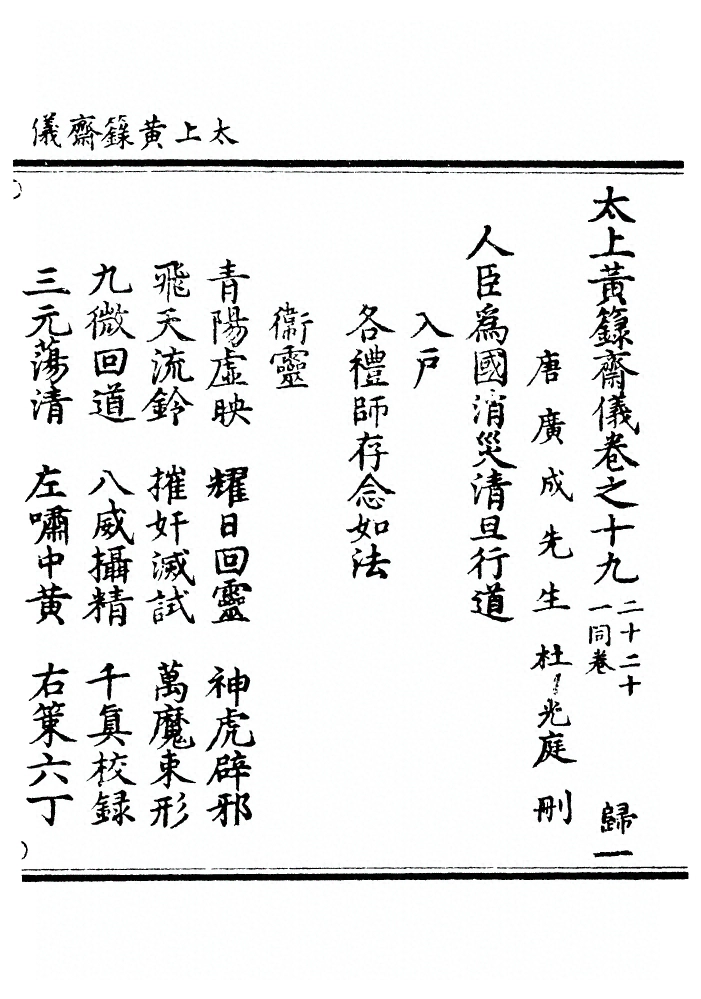 太上黃籙齋儀
太上黃籙齋儀卷之十九 二十二十一同卷 歸一
唐廣成先生杜光庭刪
人臣爲國消災清旦行道
入戶
各禮師存念如法
衞靈
青陽虛映 耀日回靈 神虎辟邪
飛天流鈴 摧奸滅試 萬魔束形
九微回道 八威攝精 千眞校録
三元蕩清 左嘯中黃 右策六丁